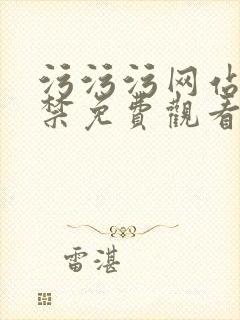 污污污网佔
禁免費觀看
雷湛